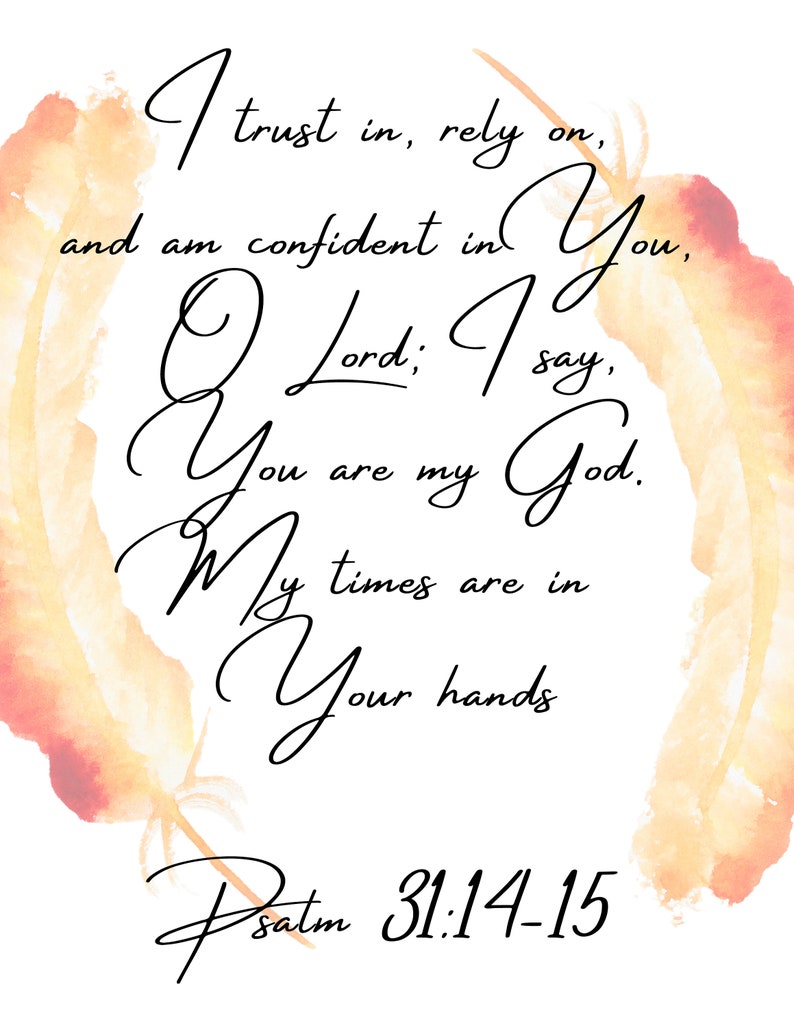 I trust in, rely on,
and am confident in You,
O Lord; I say,
You are my God.
My times are in
Your hands
Psalm 31:14-15